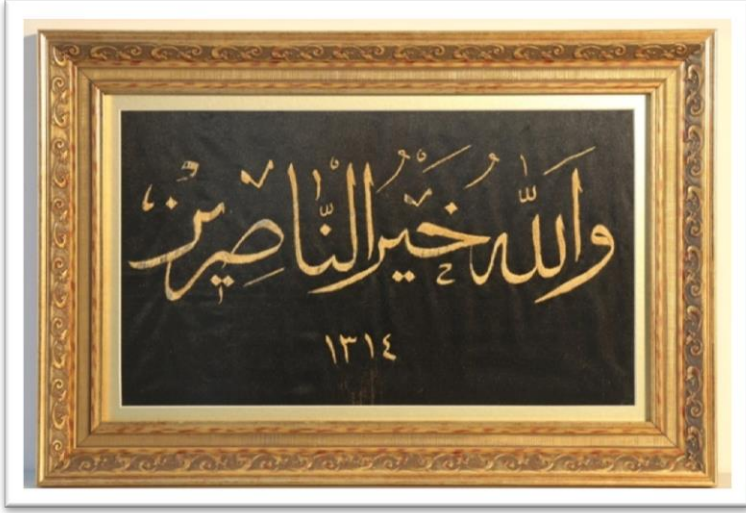 والله خير الناصرين
١٣١٤